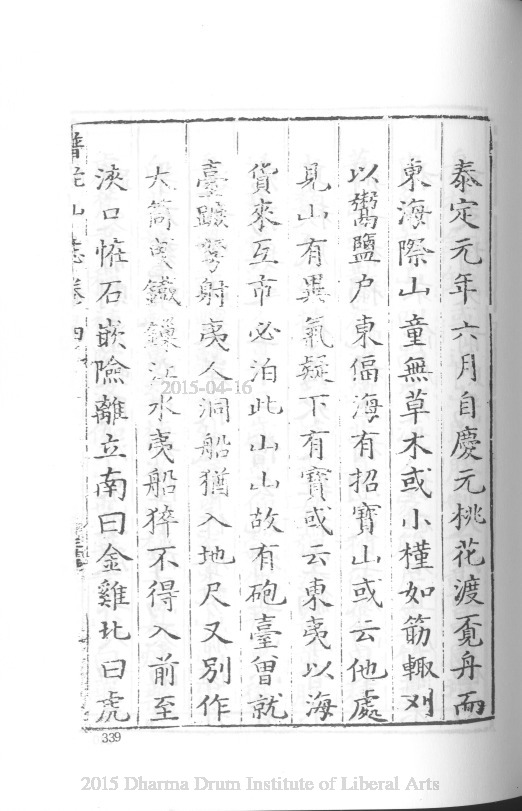 泰定元年六月自慶元桃花渡覔舟而
東海際山童無草木或小槿如筯輙刈
以鬻鹽户東偪海有招寶山或云他處
見山有異氣疑下有寶或云東夷以海
貨來互市必泊此山山故有砲臺曾就
臺蹶弩射夷人洞船猶入地尺又別作
大筒曳鐵鎖江水夷船猝不得入前至
浹口恠石嵌險離立南曰金雞北曰虎
普陀山志卷四
2015-04-16
339
2015 Dharma Drum Institute of Liberal Arts